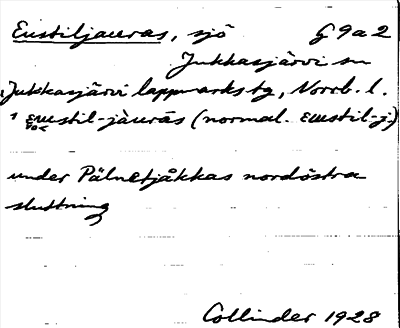 Eustiljauras, sjö G 9 a 2
Jukkasjärvi sn
Jukkasjärvi lappmarks tg, Norrb. l.
eustil-jàurās (normal. eustil-j.)
under Pålnotjåkkas nordöstra
sluttning
Collinder 1928